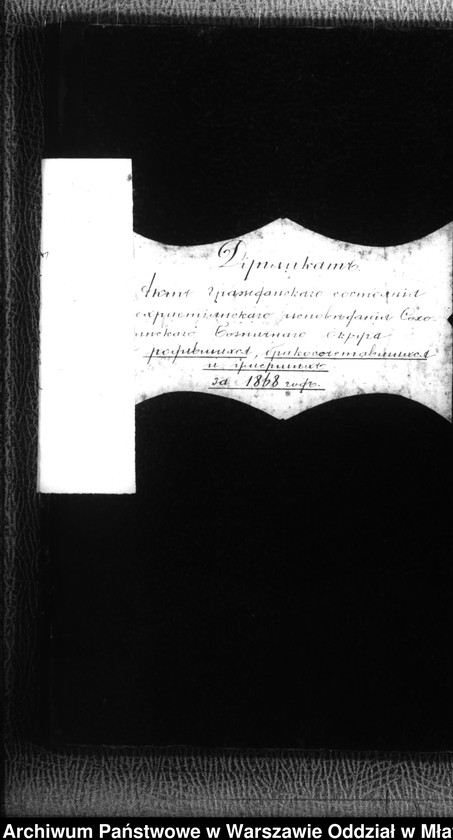 Дупликатъ
Актъ гражданскаго состоянія
нехристіянскаго исповѣданія Сохо-
цинскаго Божничнаго округа
родившихся, бракосочетавшихся
и умершихъ
за 1868 годъ.
Archiwum Państwowe w Warszawie Oddział w Mła